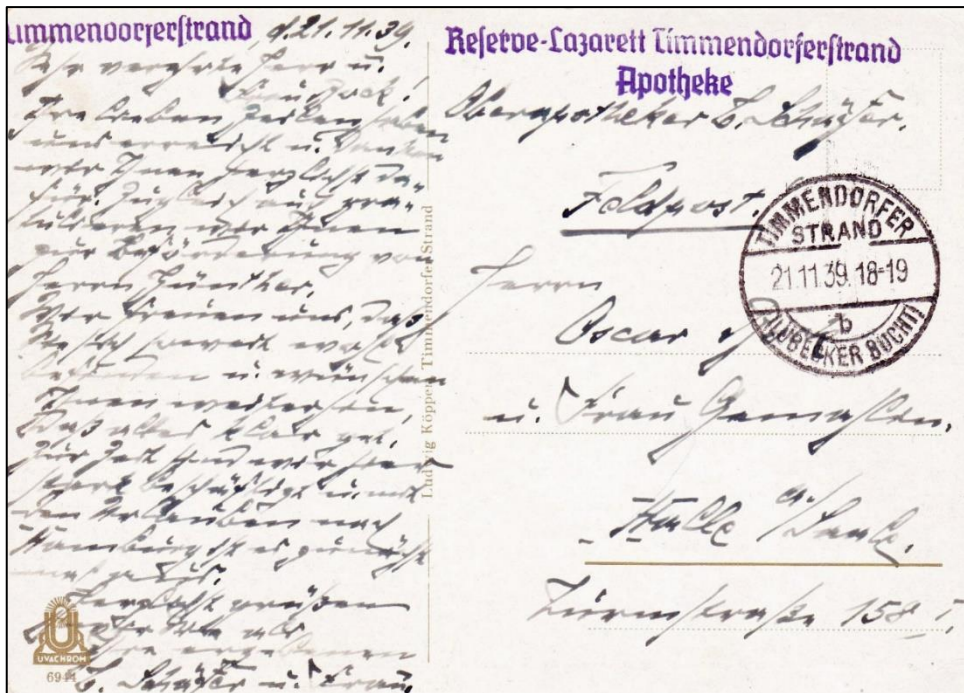 Timmendorferstrand, d. 21.11.39.
Sehr verehrter Herr u.
Frau
Ihre lieben Zeilen haben
uns erreicht u. danken
wir Ihnen herzlichst da-
für. Zugleich auch gra-
tulieren wir Ihnen
zur Beförderung von
Herrn Günther.
Wir freuen uns, daß
Sie sich soweit wohl
befinden u. wünschen
Ihnen weiterhin,
daß alles klar geht.
Zur Zeit sind wir hier
stark beschäftigt u. mit
dem Urlauben nach
Hamburg ist es zunächst
Herzlichst grüßen
Ihre ergebenen
Schäfer u. Frau
Ludwig Köppen, Timmendorfer Strand
UVACHROM
6944
Reserve-Lazarett Timmendorferstrand
Apotheke
Oberapotheker Schäfer.
Feldpost.
TIMMENDORFER
STRAND
21.11.39.18-19
b
(LÜBECKER BUCHT)
Herrn
Oscar
u. Frau Gemahlin.
Halle a/Saale.
Turmstraße 158 I